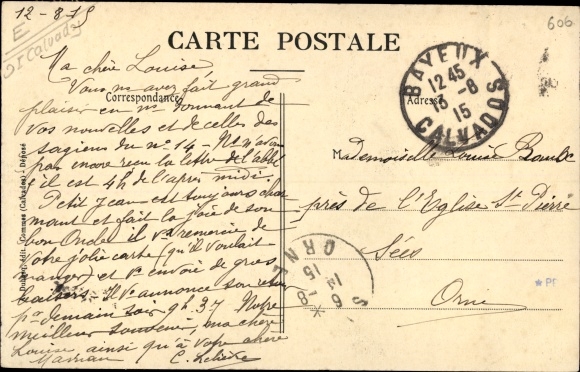 12-8-15
E
Dt Calvados
606
CARTE POSTALE
Correspondance
Adresse
BAYEUX
12 45
13 -8
15
CALVADOS
Ma chère Louise,
Vous m'avez fait grand
plaisir en me donnant de
vos nouvelles et de celles des
sagiens du no 14 - Ns n'avons
pas encore reçu la lettre de l'abbé
il est 4h de l'après midi.
Petit Jean est toujours char
mant et fait la joie de son
bon Oncle il Vs remercie de
votre jolie carte (qu'il voulait
manger) et Vs envoie de gros
baisers. Il Vs annonce son retour
pr demain soir 9h.37 Notre
meilleur souvenir, ma chère
Louise ainsi qu'à votre chère
Maman
C.
Mademoiselle Louise
près de l'Eglise St Pierre
Sées
Orne
ORNE
14 -8
15
* PF
édit. Commes (Calvados) - Déposé